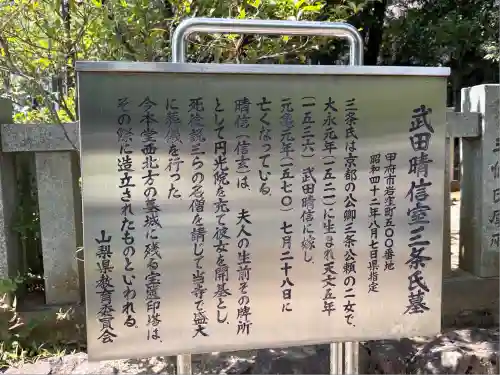 武田晴信室三条氏墓
甲府市岩窪町五〇〇番地
昭和四十二年八月七日県指定
三条氏は京都の公卿三条公頼の二女で、
大永元年(一五二一)に生まれ天文五年
(一五三六)武田晴信に嫁し、
元亀元年(一五七〇)七月二十八日に
亡くなっている。
晴信(信玄)は、夫人の生前その牌所
として円光院を充て彼女を開基とし、
死後説三らの名僧を請じて当寺で盛大
に葬儀を行った。
今本堂西北方の墓域に残る宝篋印塔は、
その際に造立されたものといわれる。
山梨県教育委員会